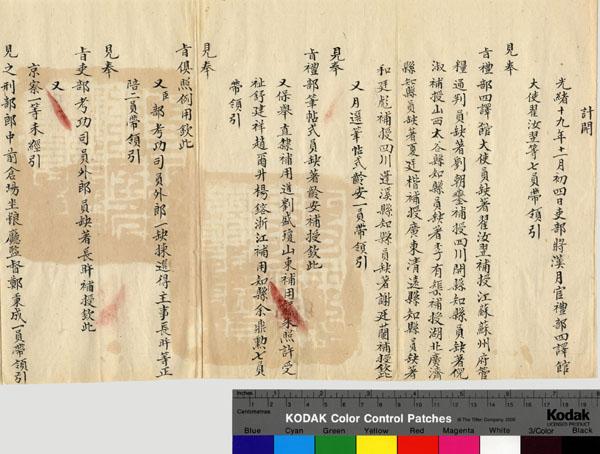 計開
光緒十九年十一月初四日吏部將漢月官禮部四譯館
大使翟汝翌等七員帶領引
見奉
旨禮部四譯館大使員缺著翟汝翌補授江蘇蘇州府管
糧通判員缺著劉朝鏊補授四川開縣知縣員缺著倪
淑補授山西太谷縣知縣員缺著李有榘補授湖北廣濟
縣知縣員缺著夏廷楷補授廣東清遠縣知縣員缺著
和廷彪補授四川蓬溪縣知縣員缺著謝廷蘭補授欽此
又月選筆帖式齡安一員帶領引
見奉
旨禮部筆帖式員缺著齡安補授欽此
又保舉直隸補用道劉盛瓊山東補用 朱照許受
祉舒建祥趙爾升楊鎔浙江補用知縣余鼎勳七員
帶領引
見奉
旨俱照例用欽此
又臣部考功司員外郎一缺揀選得主事長昕等正
陪二員帶領引
見奉
旨吏部考功司員外郎員缺著長昕補授欽此
又
京察一等未經引
見之刑部郎中前倉場坐糧廳監督鄭秉成一員帶領引
Inches
Centimetres
KODAK Color Control Patches
© The Tiffen Company, 2000
Kodak
LICENSED PRODUCT
Blue Cyan Green Yellow Red Magenta White 3/Color Black